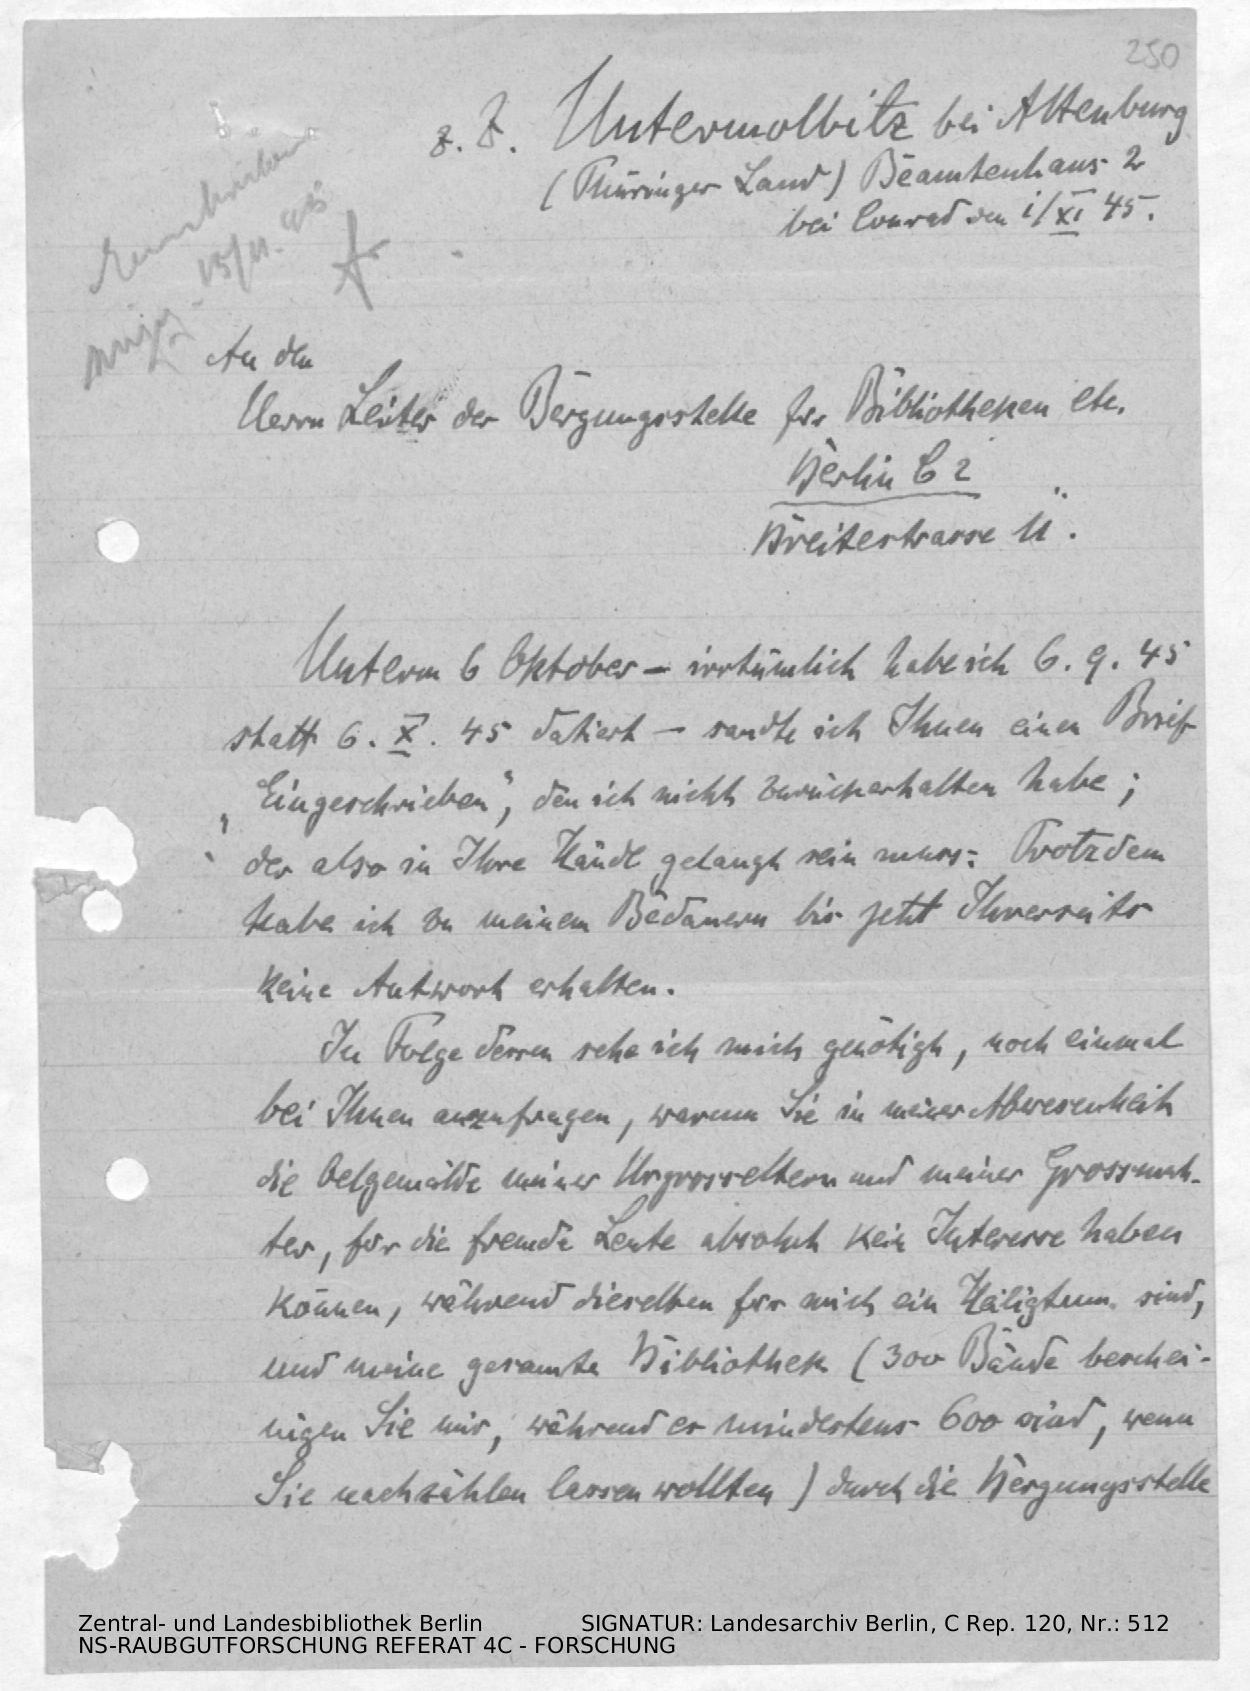 250
z. Z. Untermolbitz bei Altenburg
(Thüringer Land) Beamtenhaus 2
bei Conrad den 1/XI 45.
15/11. 45
An den
Herrn Leiter der Bergungsstelle für Bibliotheken etc.
Berlin C 2
Breitestrasse 11.
Unterm 6 Oktober – irrtümlich habe ich 6. 9. 45
statt 6. X. 45 datiert – sandte ich Ihnen einen Brief
„Eingeschrieben“, den ich nicht zurückerhalten habe;
der also in Ihre Hände gelangt sein muss. Trotzdem
habe ich zu meinem Bedauern bis jetzt Ihrerseits
keine Antwort erhalten.
In Folge dessen sehe ich mich genötigt, noch einmal
bei Ihnen anzufragen, warum Sie in meiner Abwesenheit
die Oelgemälde meiner Urgrosseltern und meiner Grossmut-
ter, für die fremde Leute absolut kein Interesse haben
können, während dieselben für mich ein Heiligtum sind,
und meine gesamte Bibliothek (300 Bände beschei-
nigen Sie mir, während es mindestens 600 sind, wenn
Sie nachzählen lassen wollten) durch die Bergungsstelle
Zentral- und Landesbibliothek Berlin SIGNATUR: Landesarchiv Berlin, C Rep. 120, Nr.: 512
NS-RAUBGUTFORSCHUNG REFERAT 4C - FORSCHUNG